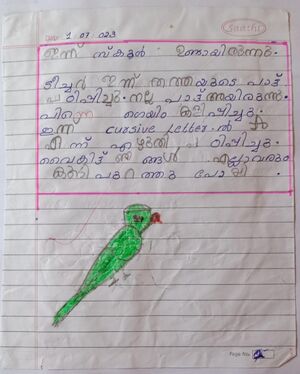 Saathi
Date 1 07 023
ഇന്ന് സ്കൂൾ ഉണ്ടായിരുന്നു.
ടീച്ചർ ഇന്ന് തത്തയുടെ പാട്ട്
പഠിപ്പിച്ചു. നല്ല പാട്ട് ആയിരുന്നു.
പിന്നെ ഗെയിം കളിപ്പിച്ചു.
ഇന്ന cursive letter ൽ
എന്ന് എഴുതി പഠിപ്പിച്ചു.
വൈകിട്ട് ഞങ്ങൾ എല്ലാവരും
പുറത്തു പോയി
Page No.